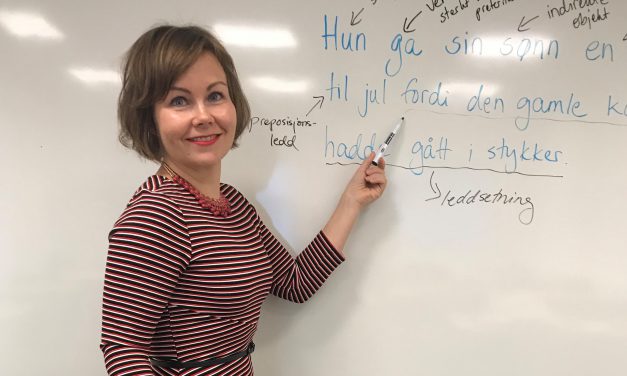 sterkt preteritum
indirekte
objekt
Hun ga sin sønn en
til jul fordi den gamle
preposisjons-
ledd
hadde gått i stykker.
leddsetning